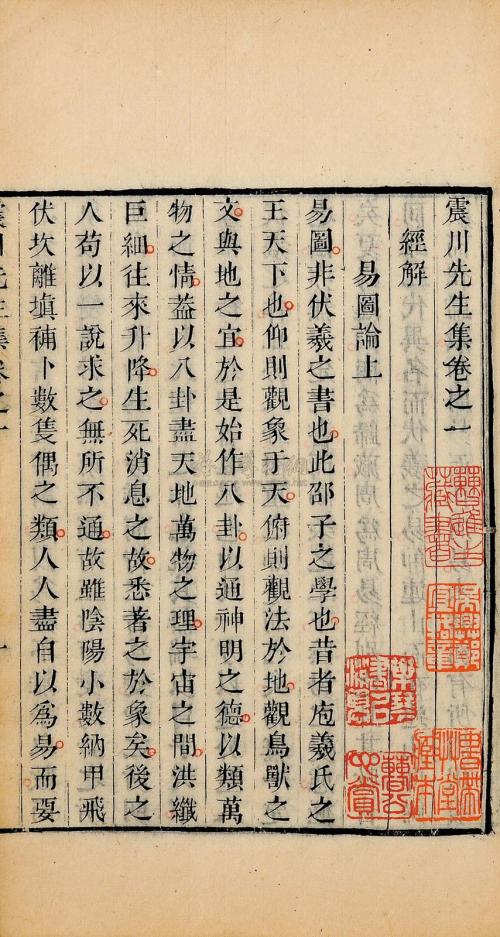 震川先生集卷之一
經解
易圖論上
易圖非伏羲之書也此邵子之學也昔者庖羲氏之
王天下也仰則觀象于天俯則觀法於地觀鳥獸之
文與地之宜於是始作八卦以通神明之德以類萬
物之情葢以八卦盡天地萬物之理宇宙之間洪纖
巨細往來升降生死消息之故悉著之於象矣後之
人苟以一說求之無所不通故雖陰陽小數納甲飛
伏坎離塡補卜數隻偶之類人人盡自以爲易而要
震川先生集卷之一